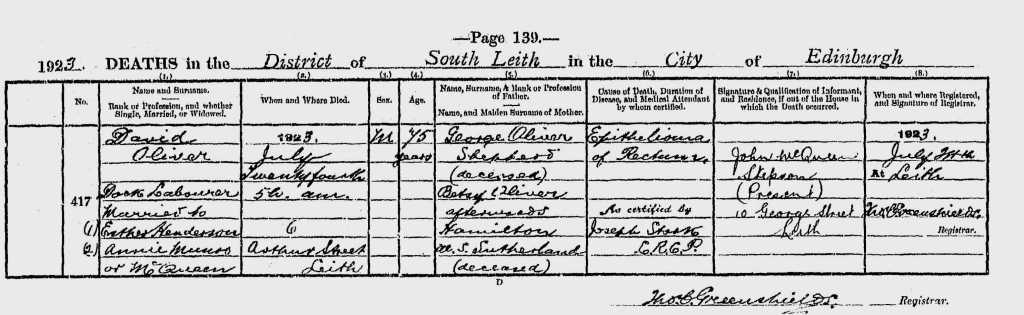 —Page 139.—
1923. DEATHS in the District of South Leith in the City of Edinburgh
(1.) (2.) (3.) (4.) (5.) (6.) (7.) (8.)
No.
Name and Surname.
Rank or Profession, and whether
Single, Married, or Widowed.
When and Where Died.
Sex.
Age.
Name, Surname, & Rank or Profession
of Father.
Name, and Maiden Surname of Mother.
Cause of Death, Duration of
Disease, and Medical Attendant
by whom certified.
Signature & Qualification of Informant,
and Residence, if out of the House in
which the Death occurred.
When and where Registered,
and Signature of Registrar.
417
David
Oliver
Dock Labourer
Married to
(1) Esther Henderson
(2) Annie Munro
or McQueen
1923.
July
Twenty fourth
5h. am.
6
Arthur Street
Leith
M
75
years
George Oliver
Shepherd
(deceased)
Betsy Oliver
afterwards
Hamilton
M.S. Sutherland
(deceased)
Epithelioma
of Rectum.
As certified by
Joseph
L.R.C.P.
John McQueen
Stepson
(Present)
10 George Street
Leith
1923.
July
At Leith
Thos. C. Greenshields.
Registrar.
D
Thos. C. Greenshields. Registrar.